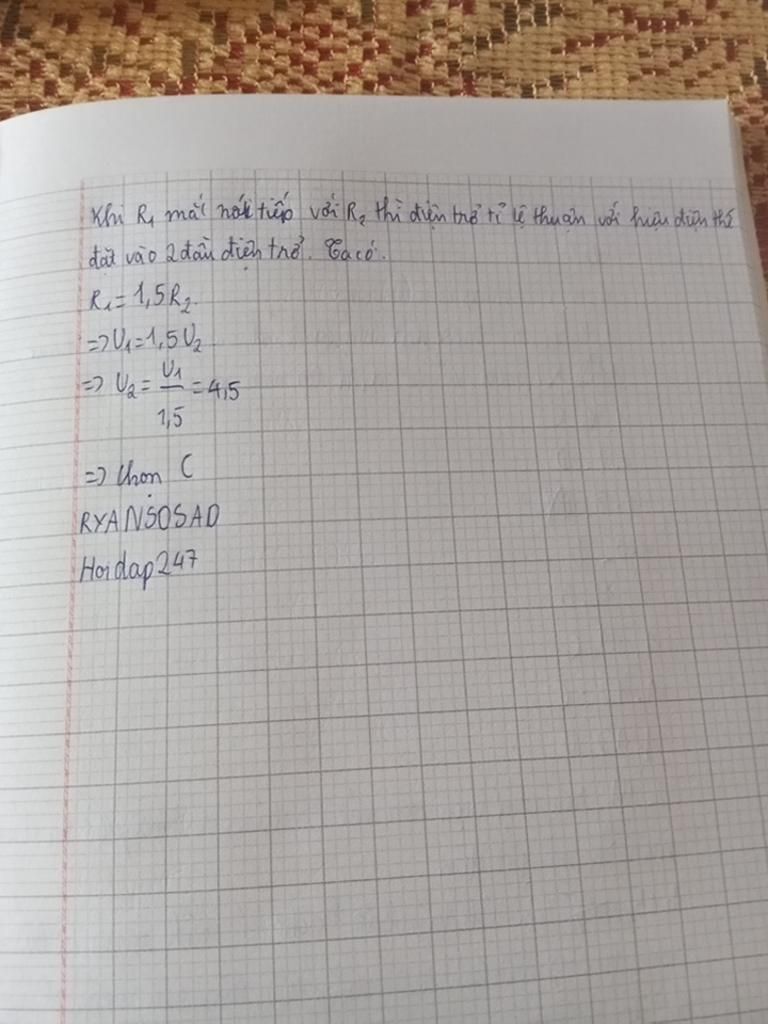 Khi R₁ mắc nối tiếp với R₂ thì điện trở tỉ lệ thuận với hiệu điện thế
đặt vào 2 đầu điện trở. Ta có.
R₁=1,5R₂.
=> U₁=1,5U₂
=> U₂= U₁/1,5 =4,5
=> Chọn C
RYANSOSAD
Hoidap247